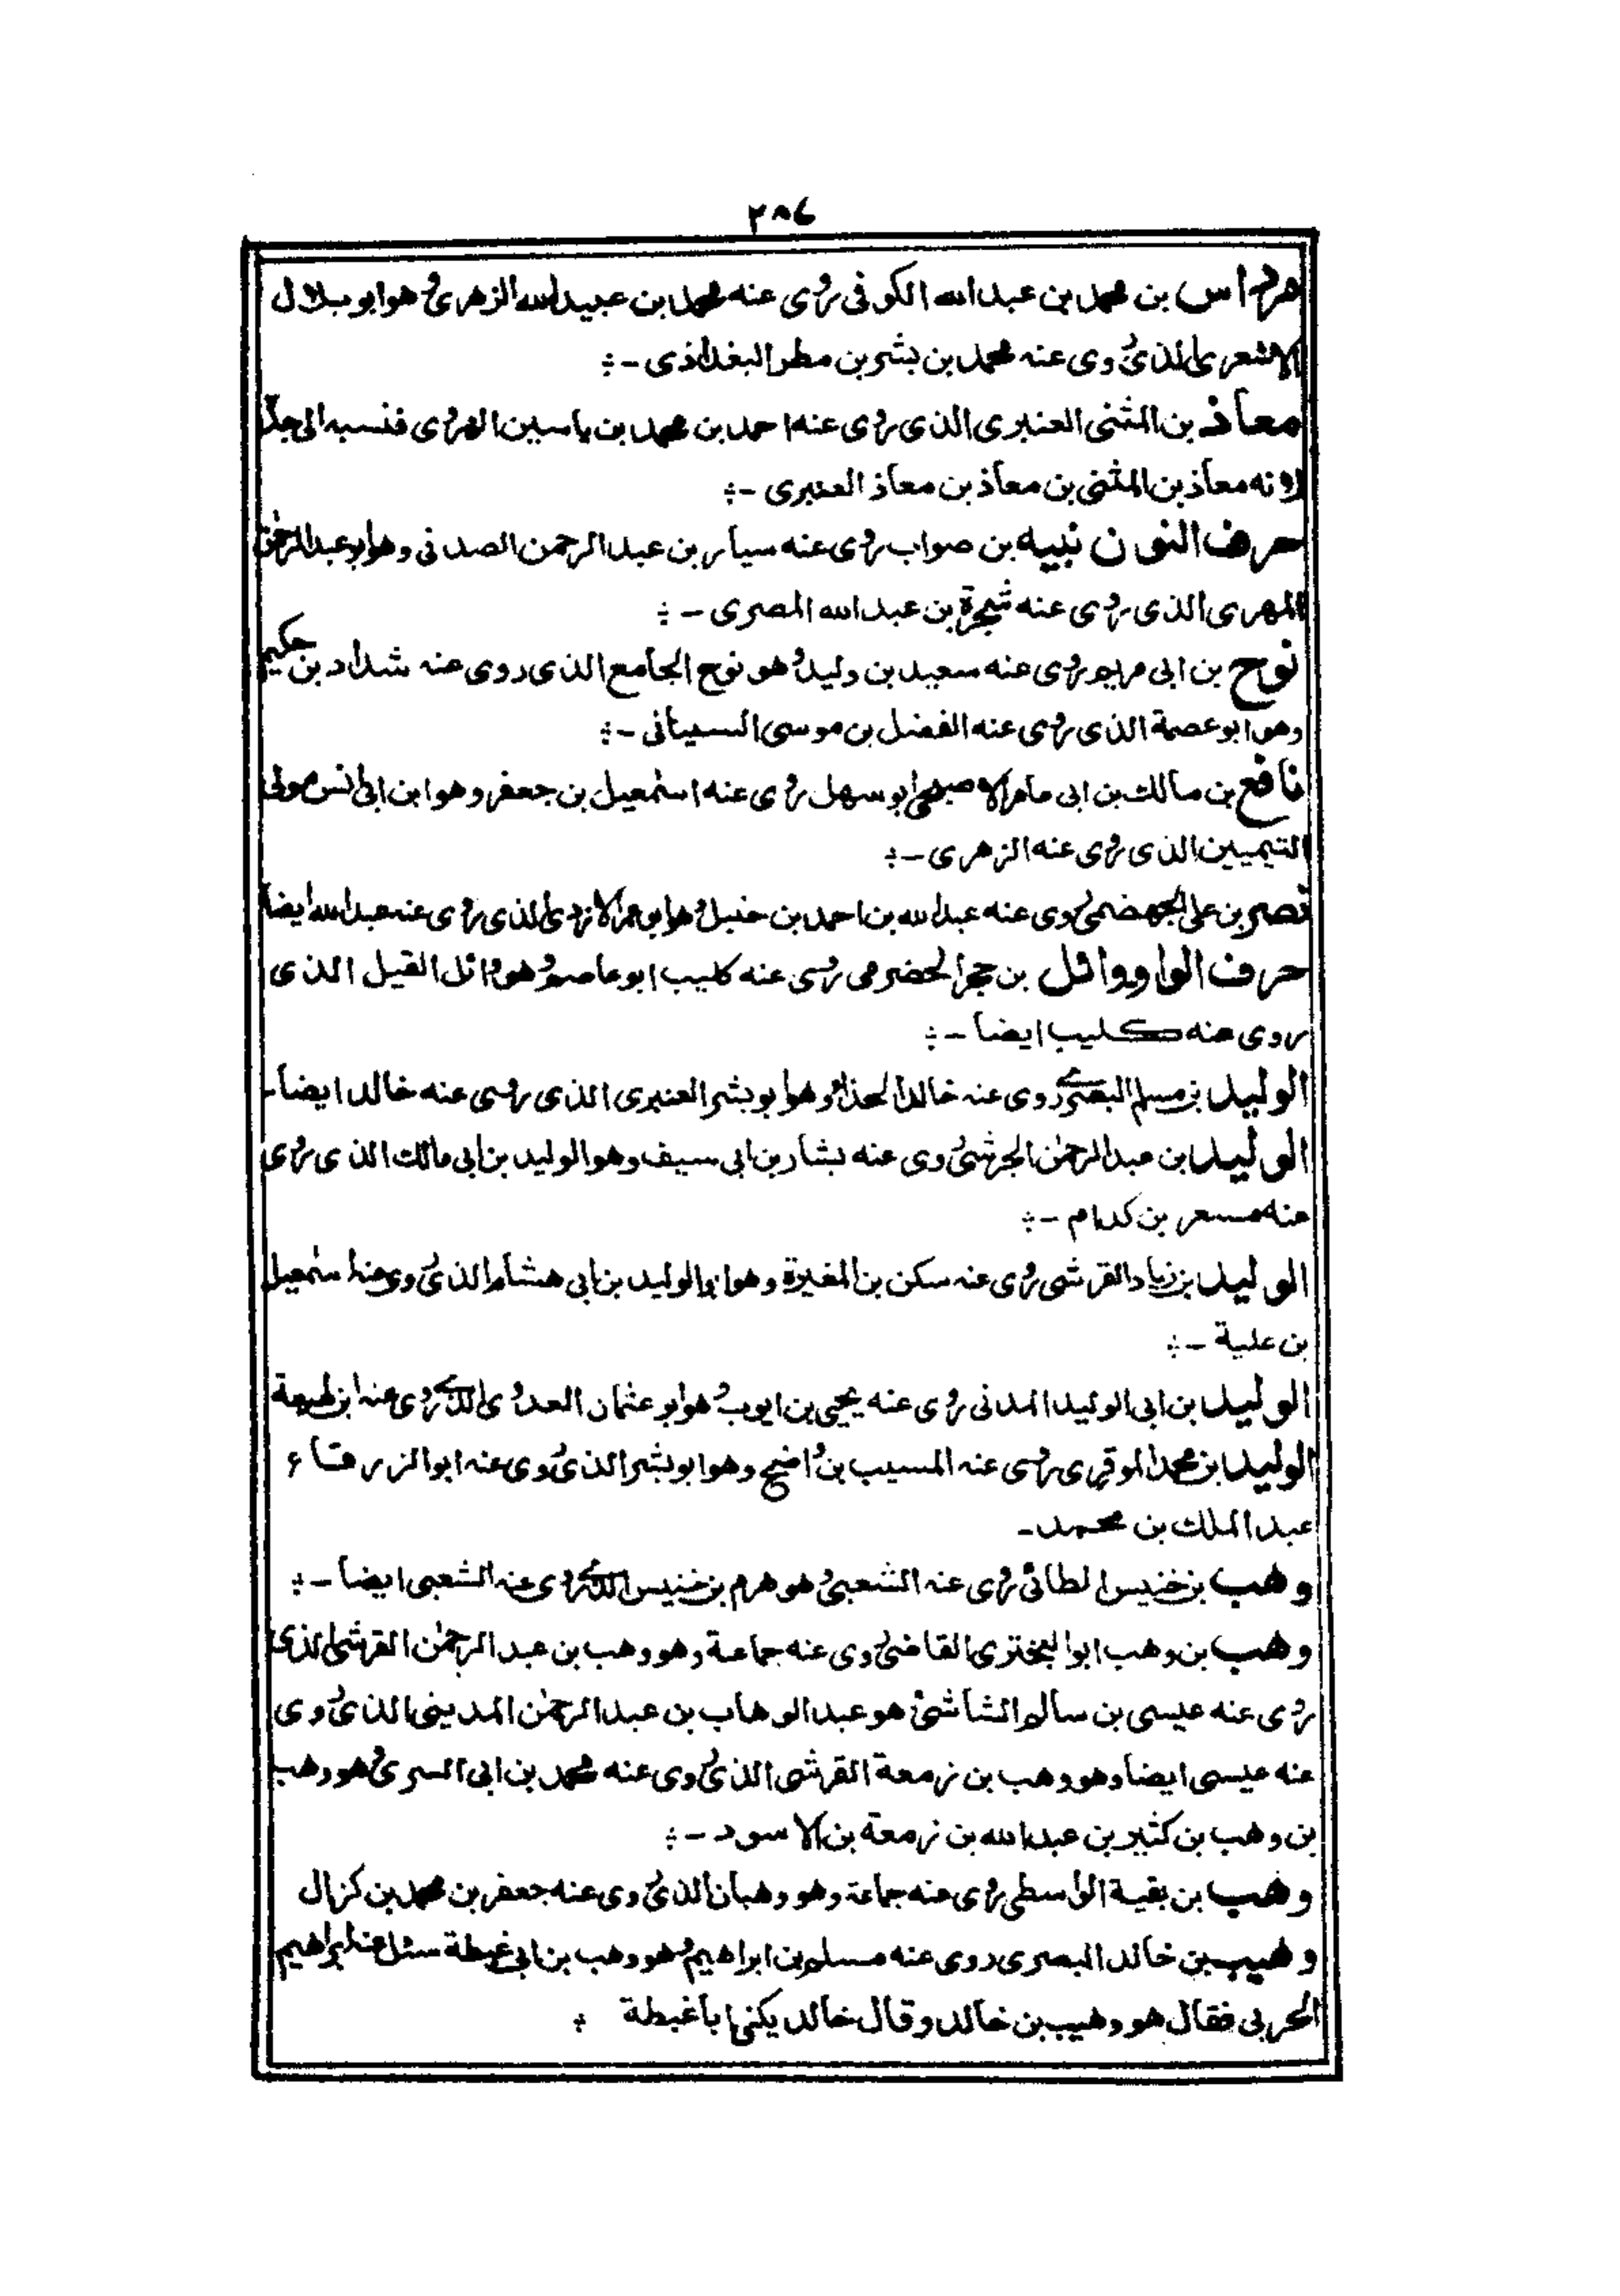 ٢٨٦
مرداس بن محمد بن عبدالله الكوفى روى عنه محمد بن عبيدالله الزهرى وهوابو بلال
الاشعرى الذى روى عنه محمد بن بشر بن مطر البغداذى -؞
معاذ بن المثنى العنبرى الذى روى عنه احمد بن محمد بن ياسين الهروى فنسبه الى جده
لانه معاذ بن المثنى بن معاذ بن معاذ العنبرى -؞
حرف النون نبيه بن صواب روى عنه سيار بن عبد الرحمن الصدفى وهوابوعبدالرحمٰن
المهرى الذى روى عنه شجرة بن عبدالله المصرى -؞
نوح بن ابى مريم روى عنه سعيد بن وليد وهو نوح الجامع الذى روى عنه شداد بن حكيم
وهوابوعصمة الذى روى عنه الفضل بن موسى السينانى -؞
نافع بن مالك بن ابى عامر الاصبحى ابوسهل روى عنه اسمٰعيل بن جعفر وهوابن ابى انس مولى
التيميين الذى روى عنه الزهرى -؞
نصر بن على الجهضمى روى عنه عبدالله بن احمد بن حنبل وهوابوعمرالازدى الذى روى عنه عبدالله ايضا
حرف الواو وائل بن حجر الحضرمى روى عنه كليب ابوعاصم وهو وائل القيل الذى
روى عنه كليب ايضا -؞
الوليد بن مسلم البصرى روى عنه خالد الحذاء وهوابوبشر العنبرى الذى روى عنه خالد ايضا-
الوليد ابن عبدالرحمٰن الجرشى روى عنه بشار بن ابى سيف وهوالوليد بن ابى مالك الذى روى
عنه مسعر بن كدام -؞
الوليد بن زياد القرشى روى عنه سكن بن المغيرة وهوابوالوليد بن ابى هشام الذى روى عنه اسمٰعيل
بن علية -؞
الوليد بن ابى الوليد المدنى روى عنه يحيى بن ايوب وهوابوعثمان العدوى الذى روى عنه ابن لهيعة
الوليد ابن محمد الموقرى روى عنه المسيب بن واضح وهوابوبشر الذى روى عنه ابوالزرقاء
عبدالملك بن محمد-
وهب بن خنيس الطائى روى عنه الشعبى وهو هرم بن خنيس الذى روى عنه الشعبى ايضا -؞
وهب بن وهب ابوالبخترى القاضى روى عنه جماعة وهو وهب بن عبدالرحمٰن القرشى الذى
روى عنه عيسى بن سالم الشاشى وهو عبدالوهاب بن عبدالرحمٰن المدينى الذى روى
عنه عيسى ايضا وهو وهب بن زمعة القرشى الذى روى عنه محمد بن ابى السرى وهو وهب
بن وهب بن كثير بن عبدالله بن زمعة بن الاسود -؞
وهب بن بقية الواسطى روى عنه جماعة وهو وهبان الذى روى عنه جعفر بن محمد بن كزال
وهيب بن خالد البصرى روى عنه مسلم بن ابراهيم وهو وهب بن ابى غبطة سئل عنه ابراهيم
الحربى فقال هو وهيب بن خالد وقال خالد يكنى اباغبطة ؞